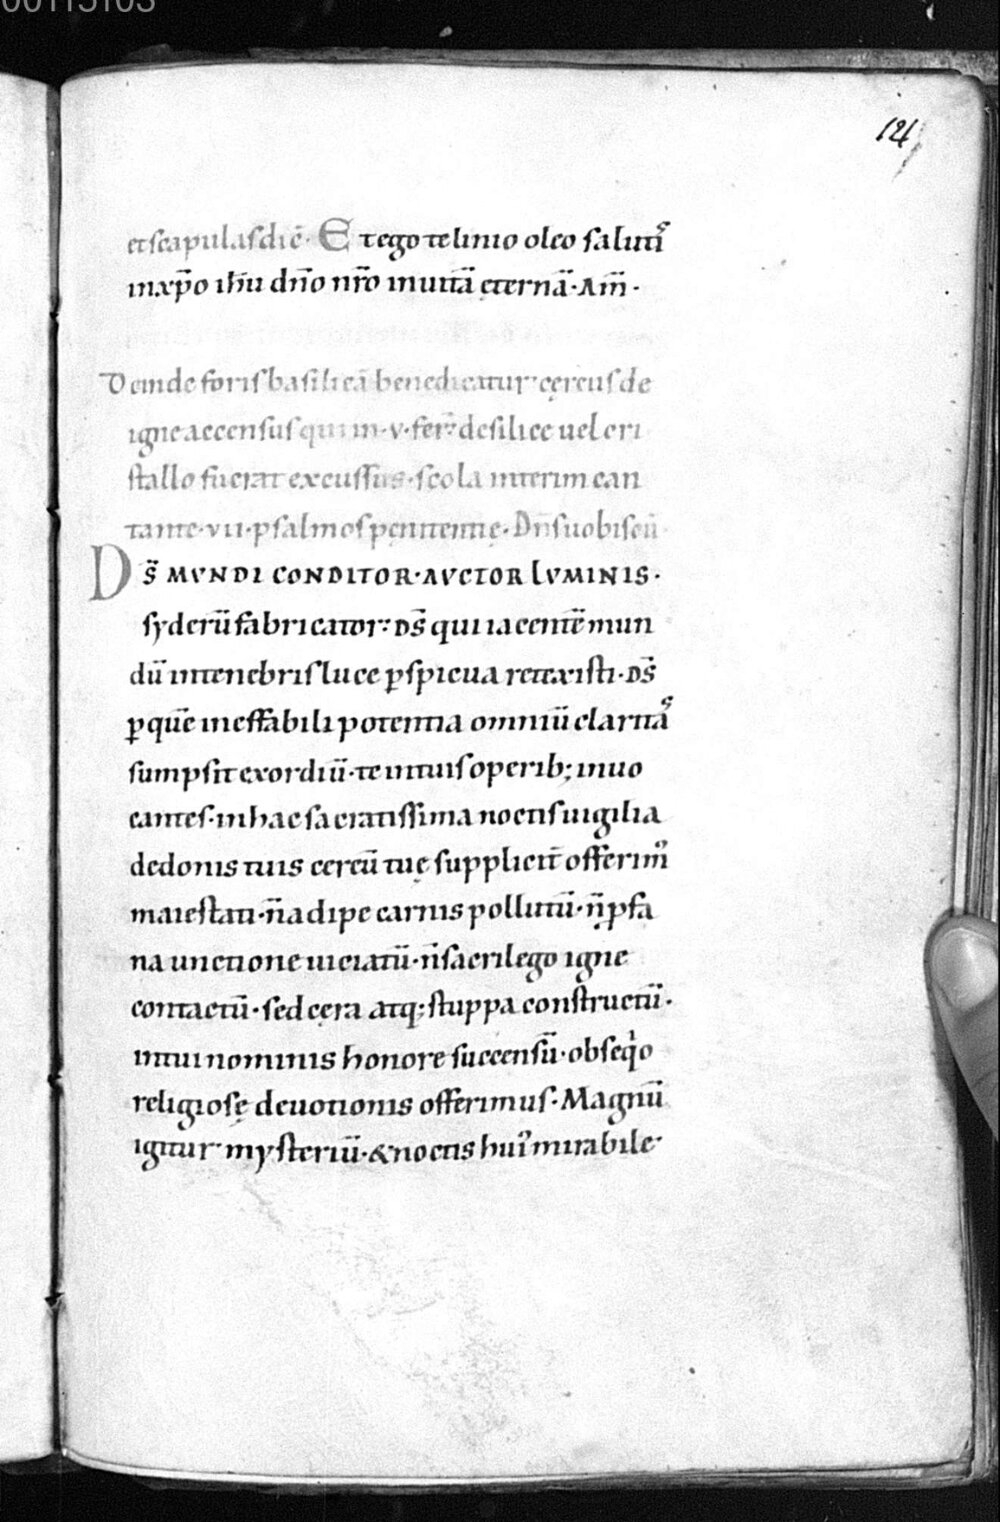 00115103
121
et scapulas dic̄· Et ego te linio oleo salutiˢ
in xp̄o ih̄u dn̄o nr̄o in uitā ęternā· Am̄·
Deinde foris basilicā benedicatur cęreus de
igne accensus qui in·v·fer̄ de silice uel cri
stallo fuerat excussus· scola interim can
tante·vii·psalmos pęnitentię· Dn̄s uobiscū·
Ds̄ MVNDI CONDITOR· AVCTOR LVMINIS·
syderū fabricator· ds̄ qui iacentē mun
dū in tenebris luce ꝑspicua retexisti· ds̄
ꝑ quē ineffabili potentia omniū claritaˢ
sumpsit exordiū· te in tuis operib; inuo
cantes· in hac sacratissima noctis uigilia
de donis tuis cereū tuę supplicit̄ offerimꝰ
maiestati· n̄ adipe carnis pollutū· n̄ ꝓfa
na unctione uiciatū· n̄ sacrilego igne
contactū· sed cęra atq; stuppa constructū·
in tui nominis honore succensū· obseqͥo
religiosę deuotionis offerimus· Magnū
igitur mysteriū· & noctis huiꝰ mirabile